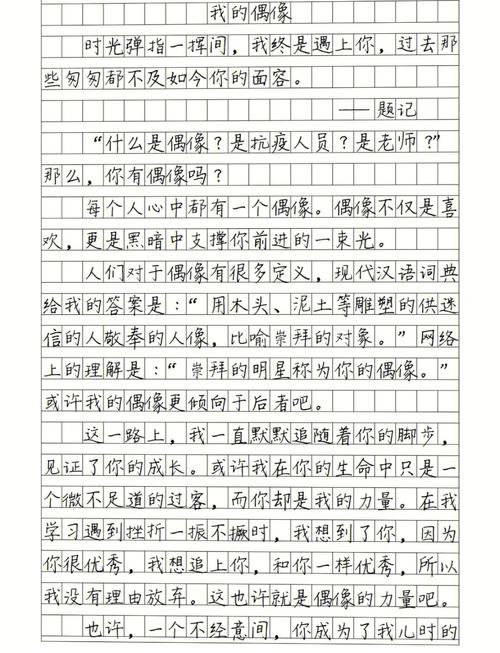 我的偶像
时光弹指一挥间，我终是遇上你，过去那
些匆匆都不及如今你的面容。
——题记
“什么是偶像？是抗疫人员？是老师？”
那么，你有偶像吗？
每个人心中都有一个偶像。偶像不仅是喜
欢，更是黑暗中支撑你前进的一束光。
人们对于偶像有很多定义，现代汉语词典
给我的答案是：“用木头、泥土等雕塑的供迷
信的人敬奉的人像，比喻崇拜的对象。”网络
上的理解是：“崇拜的明星称为你的偶像。”
或许我的偶像更倾向于后者吧。
这一路上，我一直默默追随着你的脚步，
见证了你的成长。或许我在你的生命中只是一
个微不足道的过客，而你却是我的力量。在我
学习遇到挫折一振不撅时，我想到了你，因为
你很优秀，我想追上你，和你一样优秀，所以
我没有理由放弃。这也许就是偶像的力量吧。
也许，一个不经意间，你成为了我儿时的